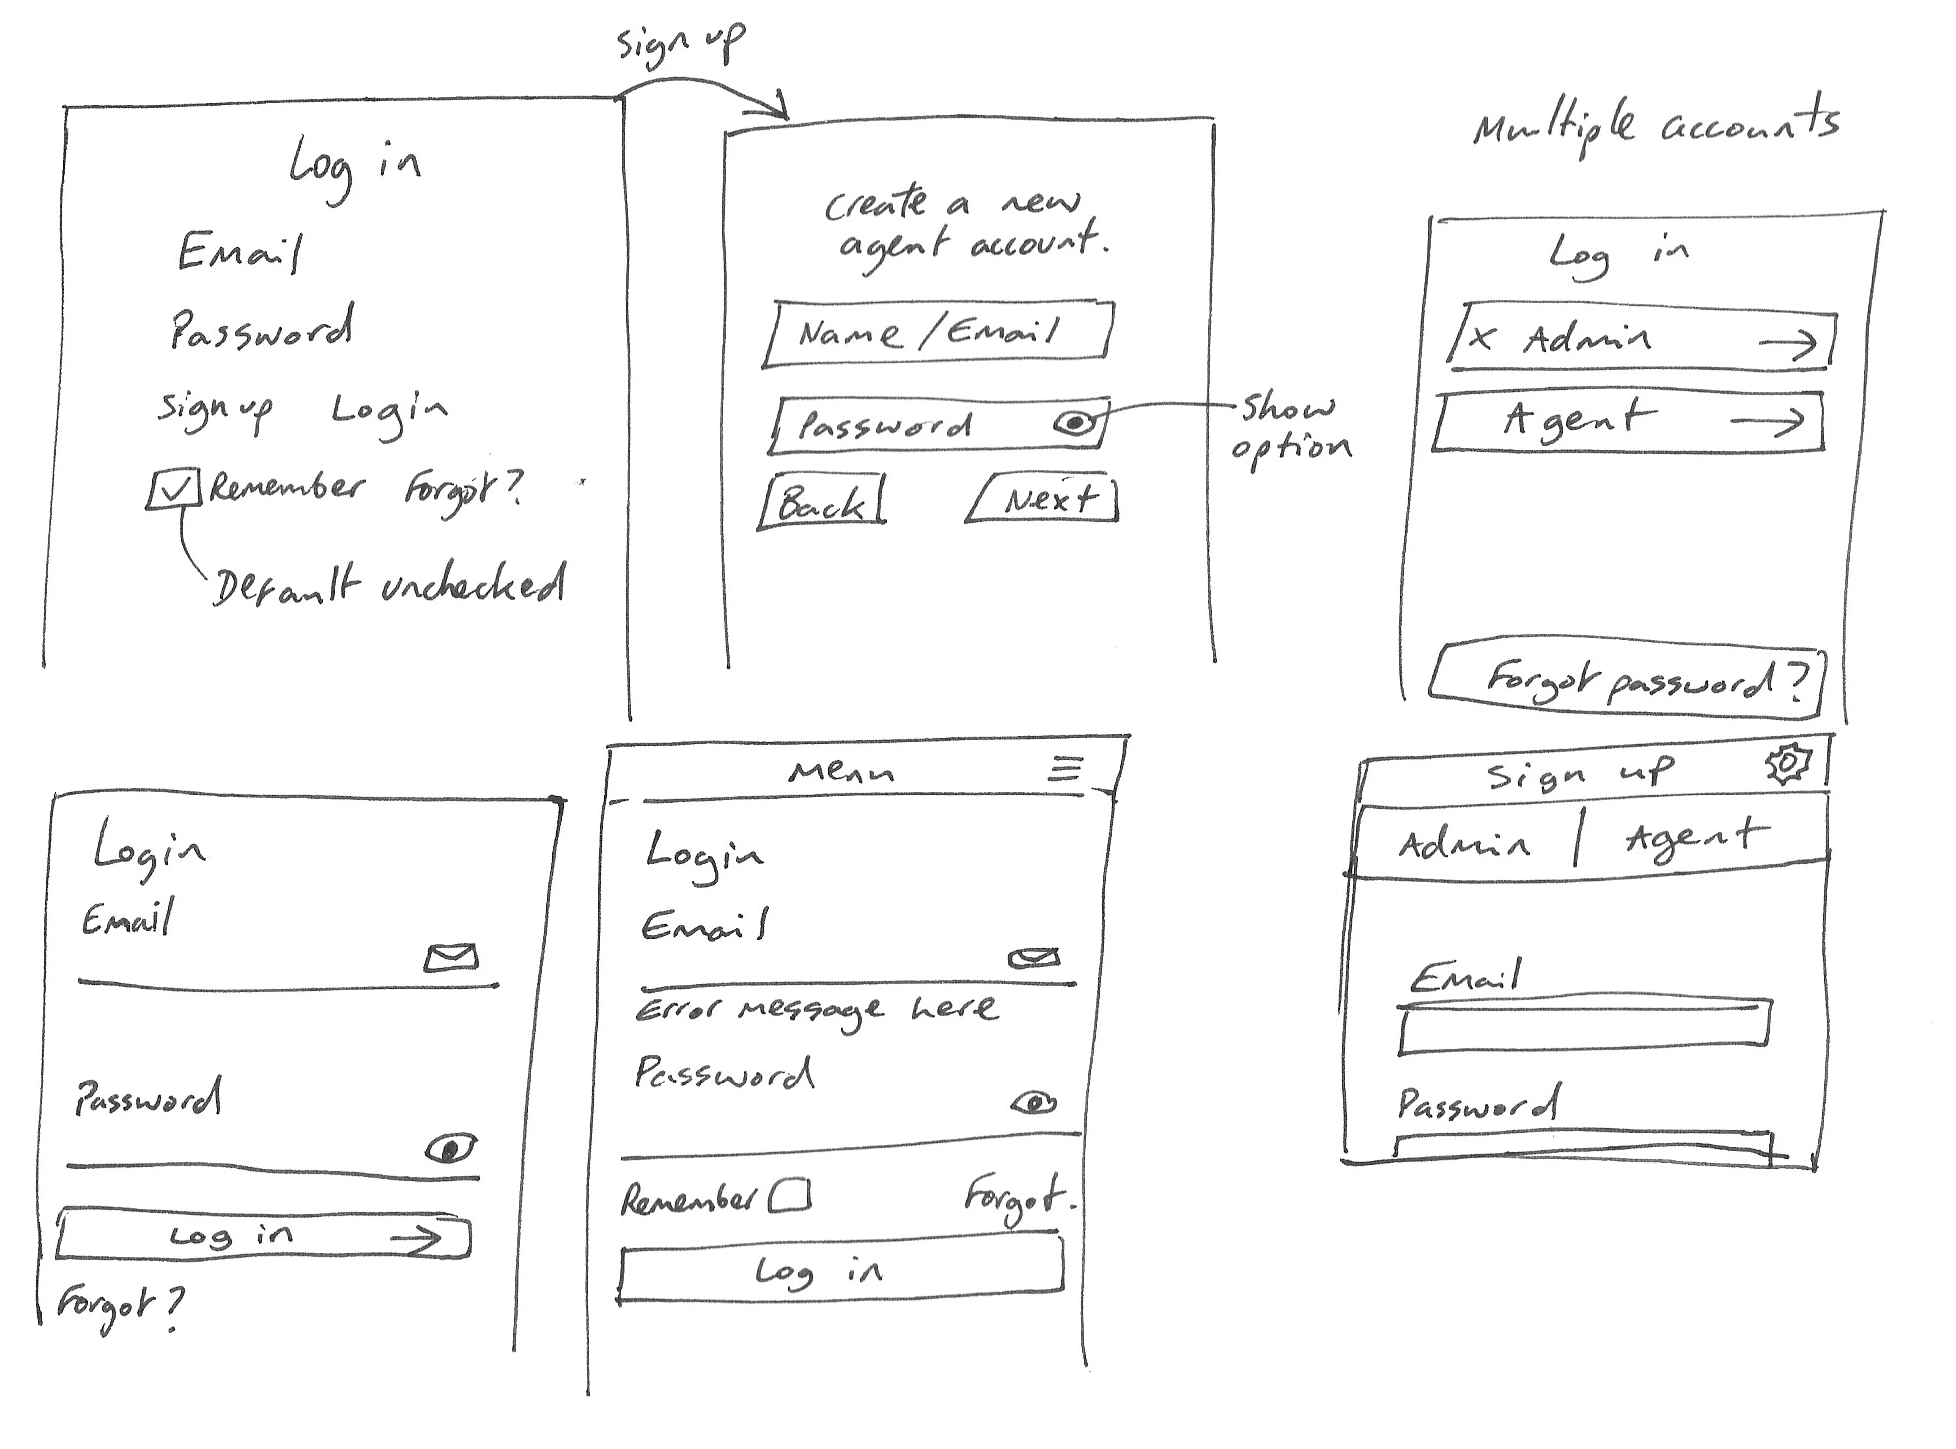 Sign up
Log in
Email
Password
Sign up Login
Remember Forgot?
Default unchecked
Create a new
agent account.
Name / Email
Password
Show
option
Back Next
Multiple accounts
Log in
X Admin
Agent
Forgot password?
Login
Email
Password
Log in
Forgot?
Menu
Login
Email
Error message here
Password
Remember Forgot.
Log in
Sign up
Admin | Agent
Email
Password